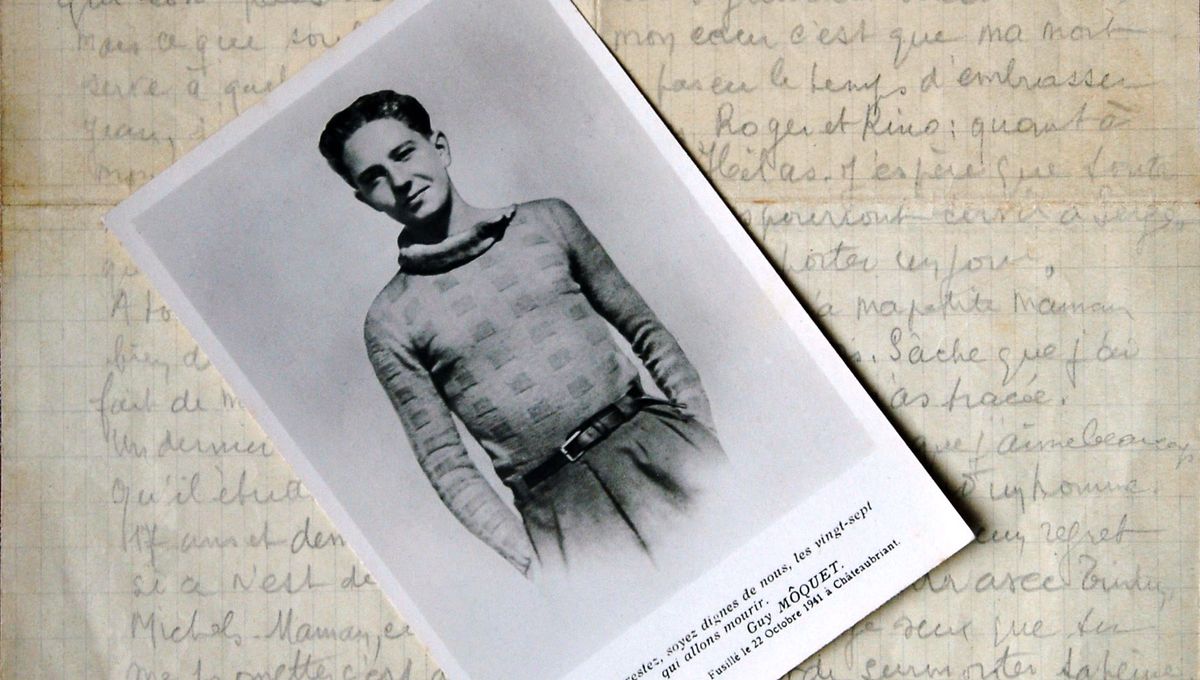 mais ce que sou mon cœur c'est que ma mort
serve à quel pas eu le temps d'embrasser
Jean, Roger et Rino ; quant à
mon Hélas. J'espère que toute
pourront servir à Serge,
qu porter un jour,
A to à ma petite Maman
bien d s. Sache que j'ai
fait de m as tracée.
Un dernier que j'aime beaucoup
Qu'il étud un homme.
17 ans et dem regret
si ce n'est de avec Tintin,
Michels. Maman, ce je veux que tu
me promettes c'est de surmonter ta peine
restez, soyez dignes de nous, les vingt-sept
qui allons mourir.
Guy MÔQUET.
Fusillé le 22 Octobre 1941 à Châteaubriant.